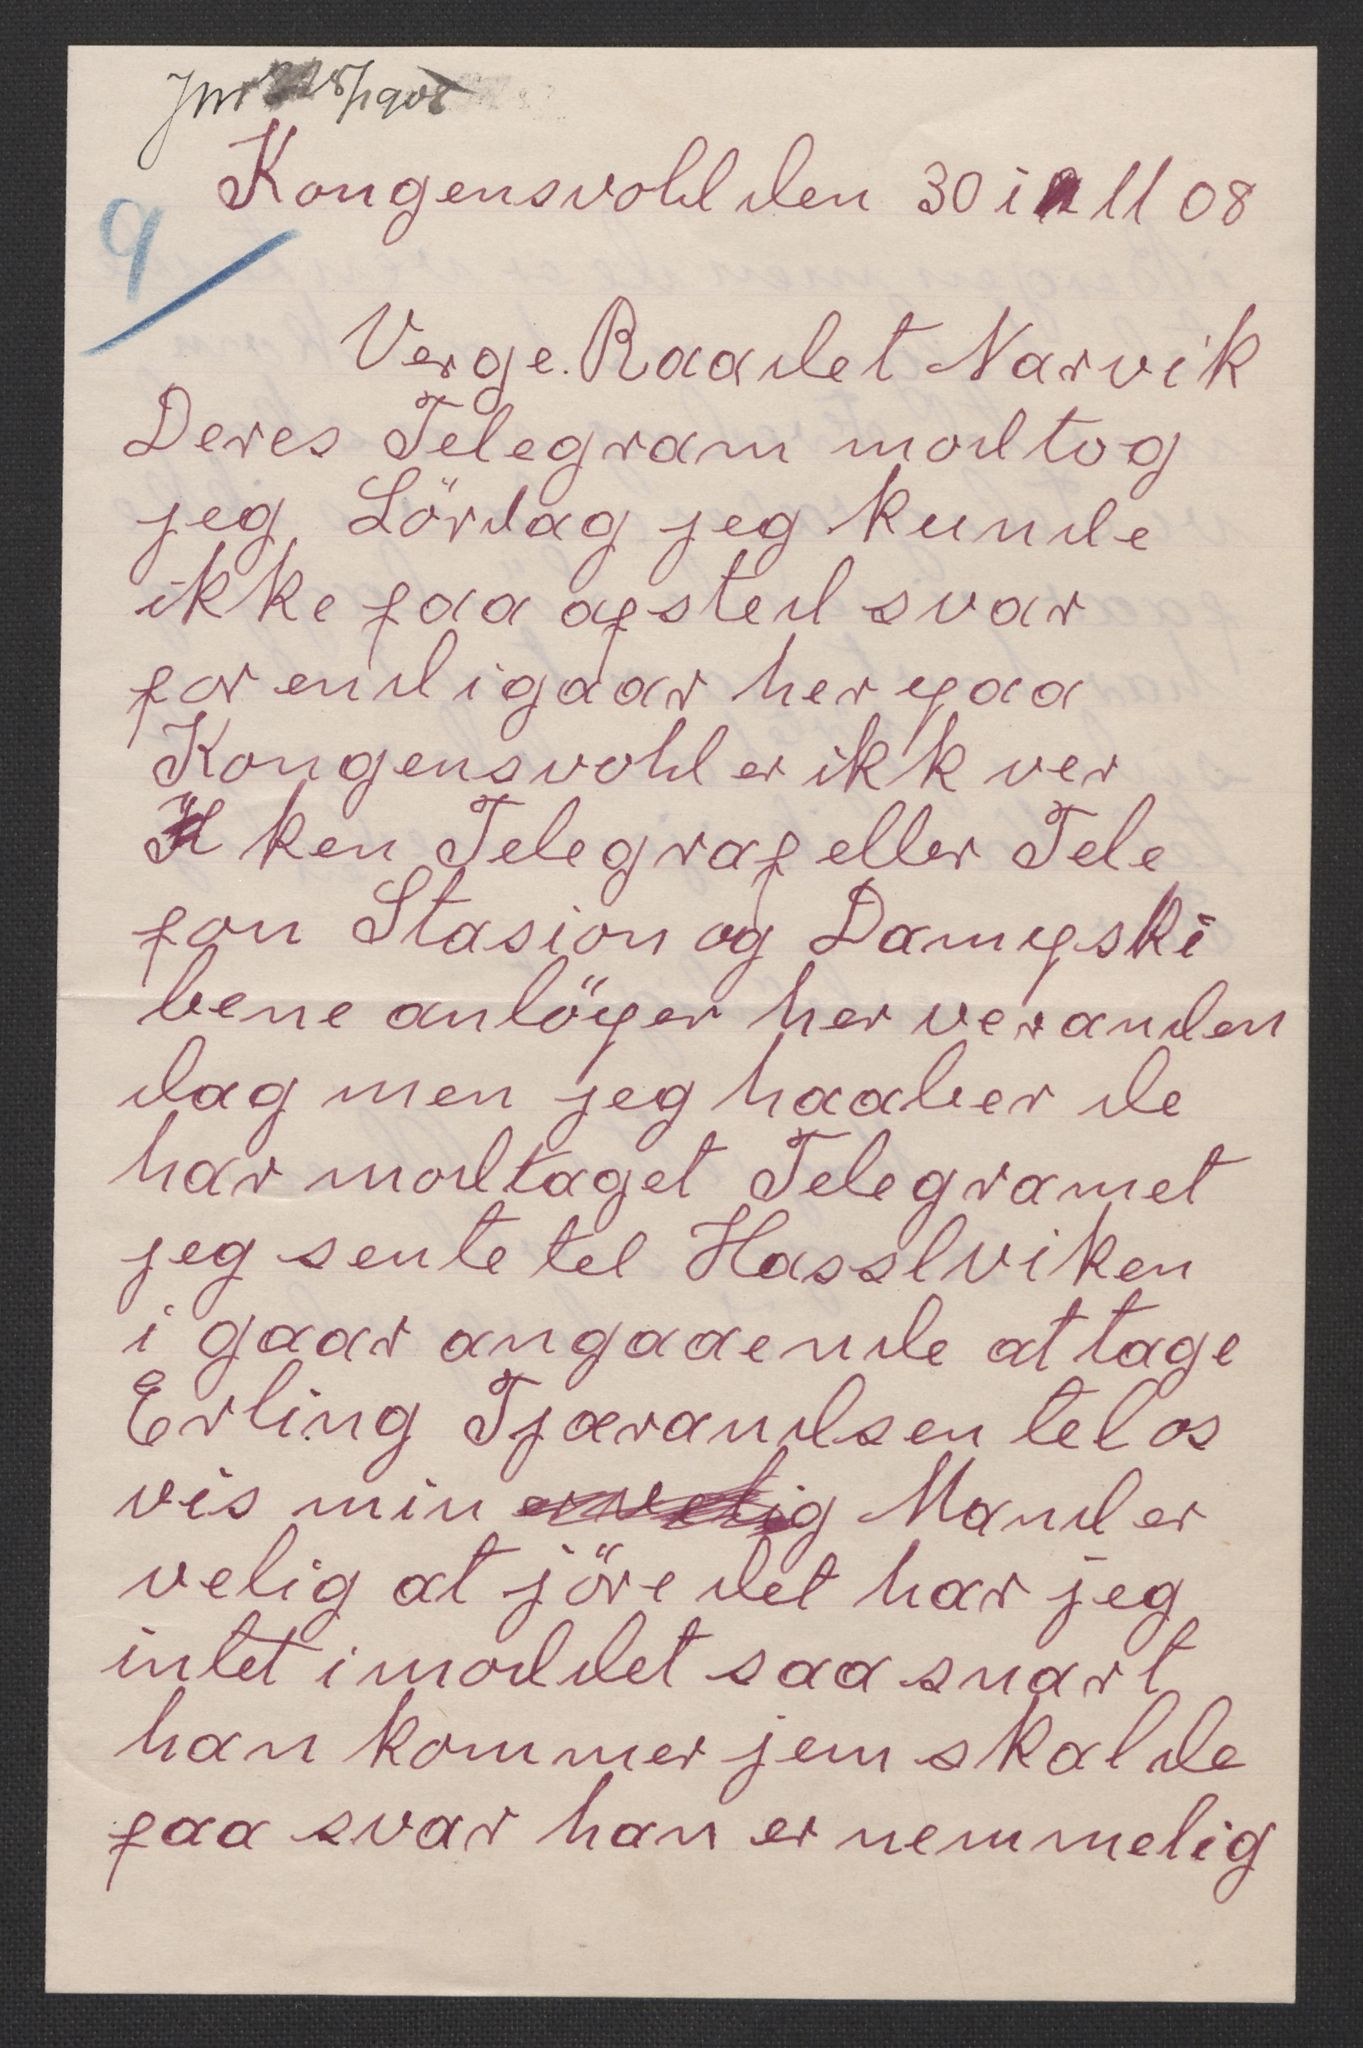 Kongensvold den 30 i 11 08
9
Verge. Raadet Narvik
Deres Telegram modtog
jeg Lördag jeg kunde
ikke faa afsted svar
for end igaar her paa
Kongensvold er ikk ver
ken Telegraf eller Tele
fon Stasion og Dampski
bene anlöper her veranden
dag men jeg haaber de
har modtaget Telegramet
jeg sente tel Hasslviken
i gaar angaaende at tage
Erling Tjærandsen tel os
vis min Mand er
velig at jöre det har jeg
intet imod det saa snart
han kommer jem skal de
faa svar han er nemmelig